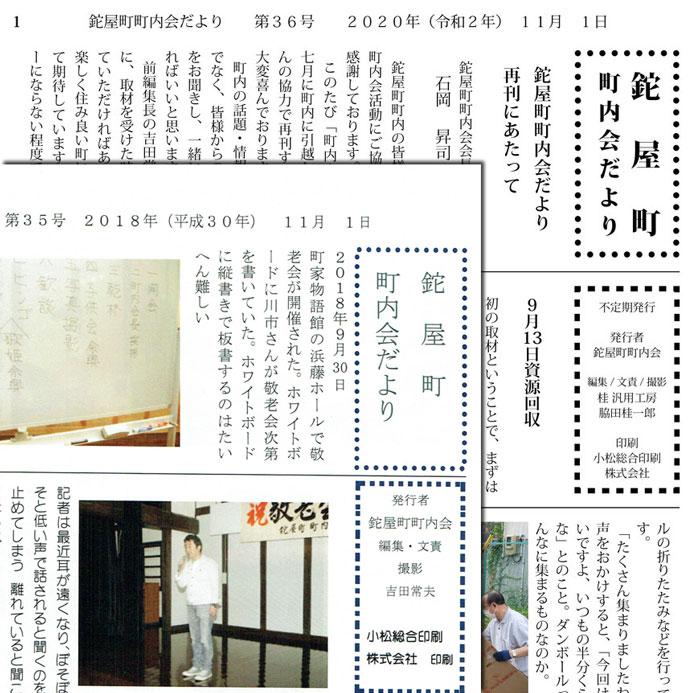 1 鉈屋町町内会だより 第36号 2020年（令和2年） 11月 1日
鉈屋町
町内会だより
鉈屋町町内会だより
再刊にあたって
鉈屋町町内会会
石岡 昇司
鉈屋町町内の皆様
町内会活動にご協
感謝しております
このたび「町内
七月に町内に引越
んの協力で再刊す
大変喜んでおります
町内の話題・情報
でなく、皆様から
をお聞きし、一緒に
ればいいと思います
前編集長の吉田常
に、取材を受けた時
ていただければあ
楽しく住み良い町に
て期待しています
ーにならない程度で
不定期発行
発行者
鉈屋町町内会
編集/文責/撮影
桂 汎用工房
脇田桂一郎
印刷
小松総合印刷
株式会社
9月13日資源回収
初の取材ということで、まずは
ルの折りたたみなどを行って
す。
「たくさん集まりましたね
声をおかけすると、「今回は
いですよ、いつもの半分くら
な」とのこと。ダンボールっ
んなに集まるものなのか。
第35号 2018年（平成30年） 11月 1日
鉈屋町
町内会だより
2018年9月30日
町家物語館の浜藤ホールで敬
老会が開催された。ホワイトボ
ードに川市さんが敬老会次第
を書いていた。ホワイトボード
に縦書きで板書するのはたい
へん難しい
発行者
鉈屋町町内会
編集・文責
撮影
吉田常夫
小松総合印刷
株式会社 印刷
祝敬老会
鉈屋町町内
記者は最近耳が遠くなり、ぼそぼ
そと低い声で話されると聞くのを
止めてしまう 離れていると聞こ